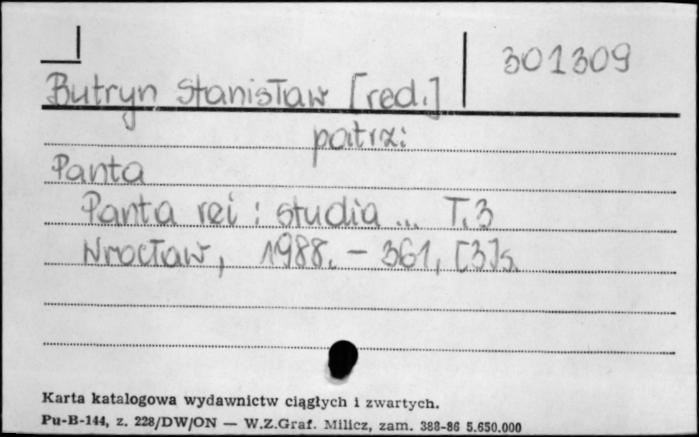 301309
Butryn Stanisław [red.]
patrz:
Panta
Panta rei : studia ... T.3
Wrocław, 1988. - 361, [3]s.
Karta katalogowa wydawnictw ciągłych i zwartych.
Pu-B-144, z. 228/DW/ON — W.Z.Graf. Milicz, zam. 388-86 5.650.000